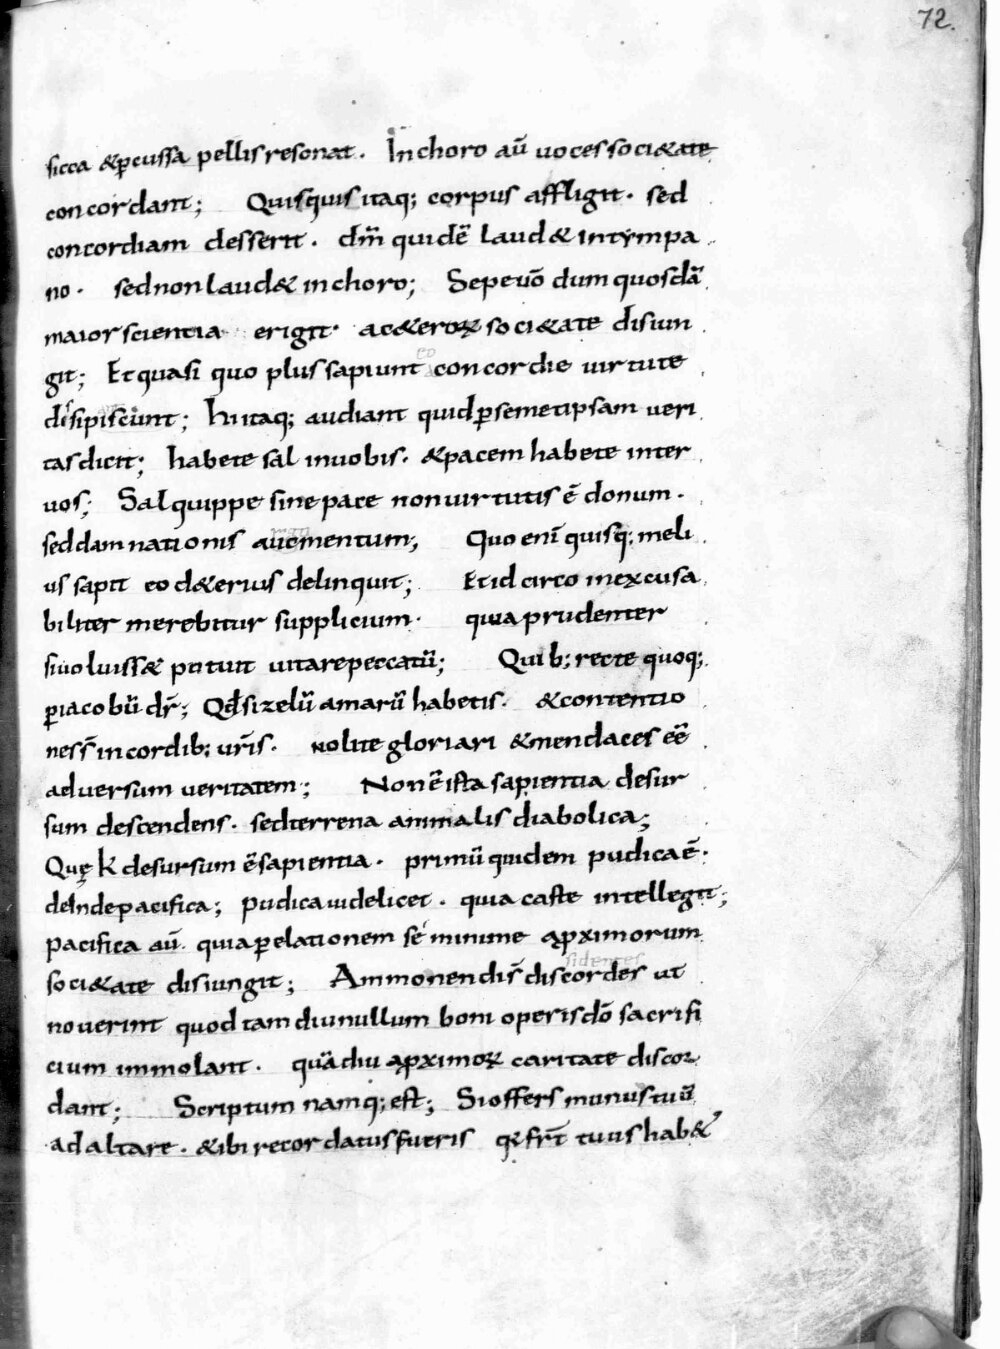 72.
sicca &ꝑcussa pellis resonat. In choro aū uoces soci&ate
concordant; Quisquis itaq; corpus affligit. sed
concordiam desserit. dm̄ quidē laud& in tympa
no. sed non laud& in choro; Sepe uō dum quosdā
maior scientia erigit. ac&eroꝝ soci&ate disiun
git; Et quasi quo plus sapiunt eo concordie uirtute
desipiscunt; Hi itaq; audiant quid ꝑ semetipsam ueri
tas dicit; habete sal in uobis. &pacem habete inter
uos; Sal quippe sine pace non uirtutis ē donum.
sed damnationis aucmentum; Quo enī quisq; meli
us sapit eo d&erius delinquit; Et idcirco inexcusa
biliter merebitur supplicium. quia prudenter
si uoluiss& potuit uitare peccatū; Quib; recte quoq;
ꝑ iacobū dr̄; Qd̄ si zelū amarū habetis. &contentio
nes s̄ in cordib; ur̄is. nolite gloriari &mendaces eē
aduersum ueritatem; Non ē ista sapientia desur
sum descendens. sed terrena animalis diabolica;
Quę k desursum ē sapientia. primū quidem pudica ē.
deinde pacifica; pudica uidelicet. quia caste intellegit;
pacifica aū. quia ꝑ elationem se minime aꝓximorum
soci&ate disiungit; Ammonendis̄ discordes ut
sidentes
nouerint quod tam diu nullum boni operis dō sacrifi
cium immolant. quādiu aꝓximoꝝ caritate discor
dant; Scriptum namq; est; Si offers munus tuū
ad altare. &ibi recordatus fueris qꝛ fr̄t tuus hab&